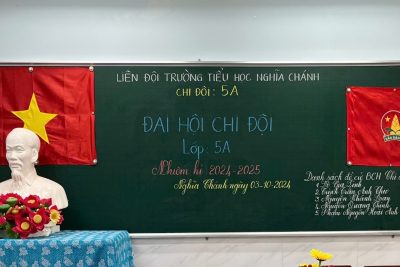 LIÊN ĐỘI TRƯỜNG TIỂU HỌC NGHĨA CHÁNH
CHI ĐỘI : 5A
ĐẠI HỘI CHI ĐỘI
Lớp : 5A
Nhiệm kì 2024-2025
Nghĩa Chánh ngày 03-10-2024
Danh sách đề cử BCH Chi
1.
2. Trịnh Trần Anh Thư
3. Nguyễn Khánh
4. Nguyễn Quang
5. Phạm Nguyễn Hoài Anh